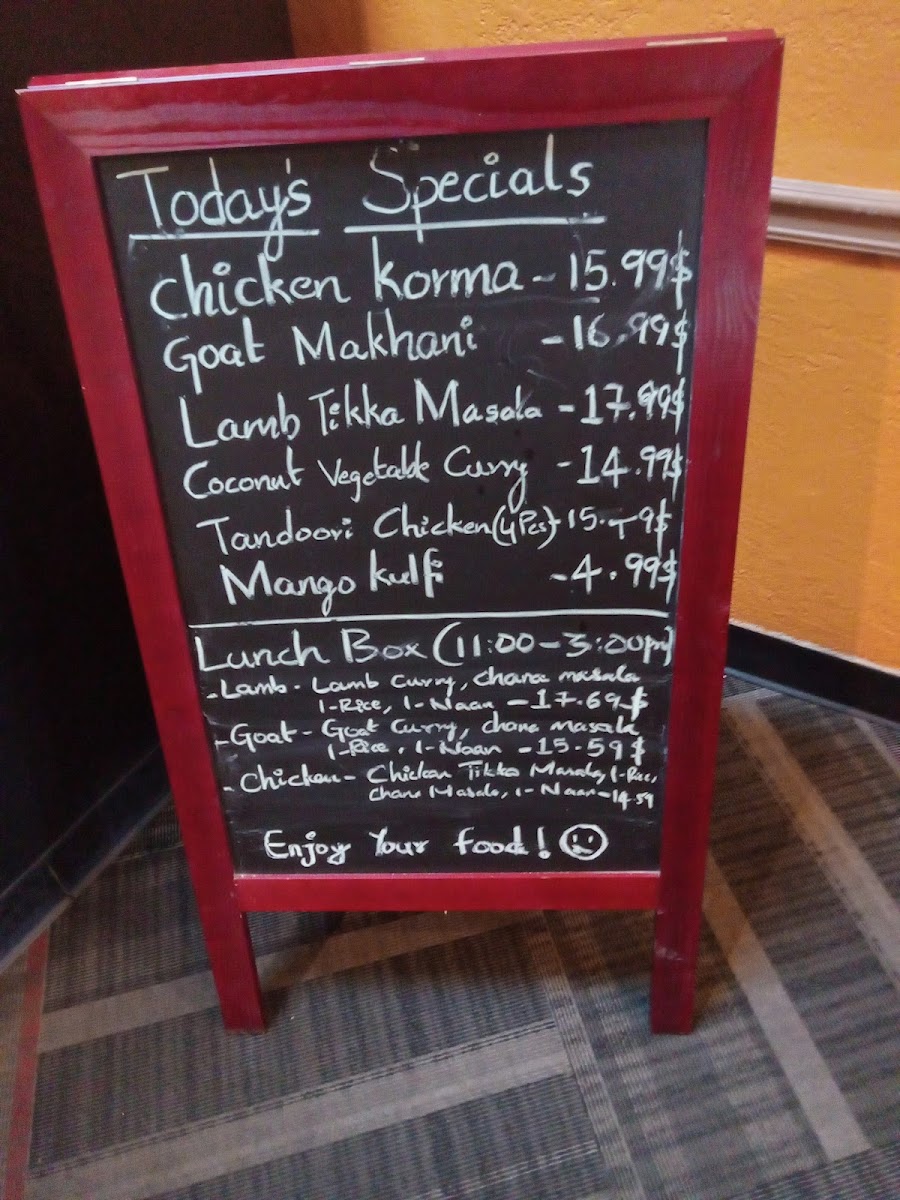 Today's Specials
Chicken Korma - 15.99$
Goat Makhani - 16.99$
Lamb Tikka Masala - 17.99$
Coconut Vegetable Curry - 14.99$
Tandoori Chicken (4Pcs) -
Mango kulfi - 4.99$
Lunch Box (11:00 - 3:00pm)
- Lamb - Lamb curry, chana masala
1-Rice, 1-Naan - 17.69$
- Goat - Goat Curry, chana masala
1-Rice, 1-Naan - 15.59$
- Chicken - Chicken Tikka Masala, 1-Rice,
Chana Masala, 1-Naan - 14.59
Enjoy Your food!